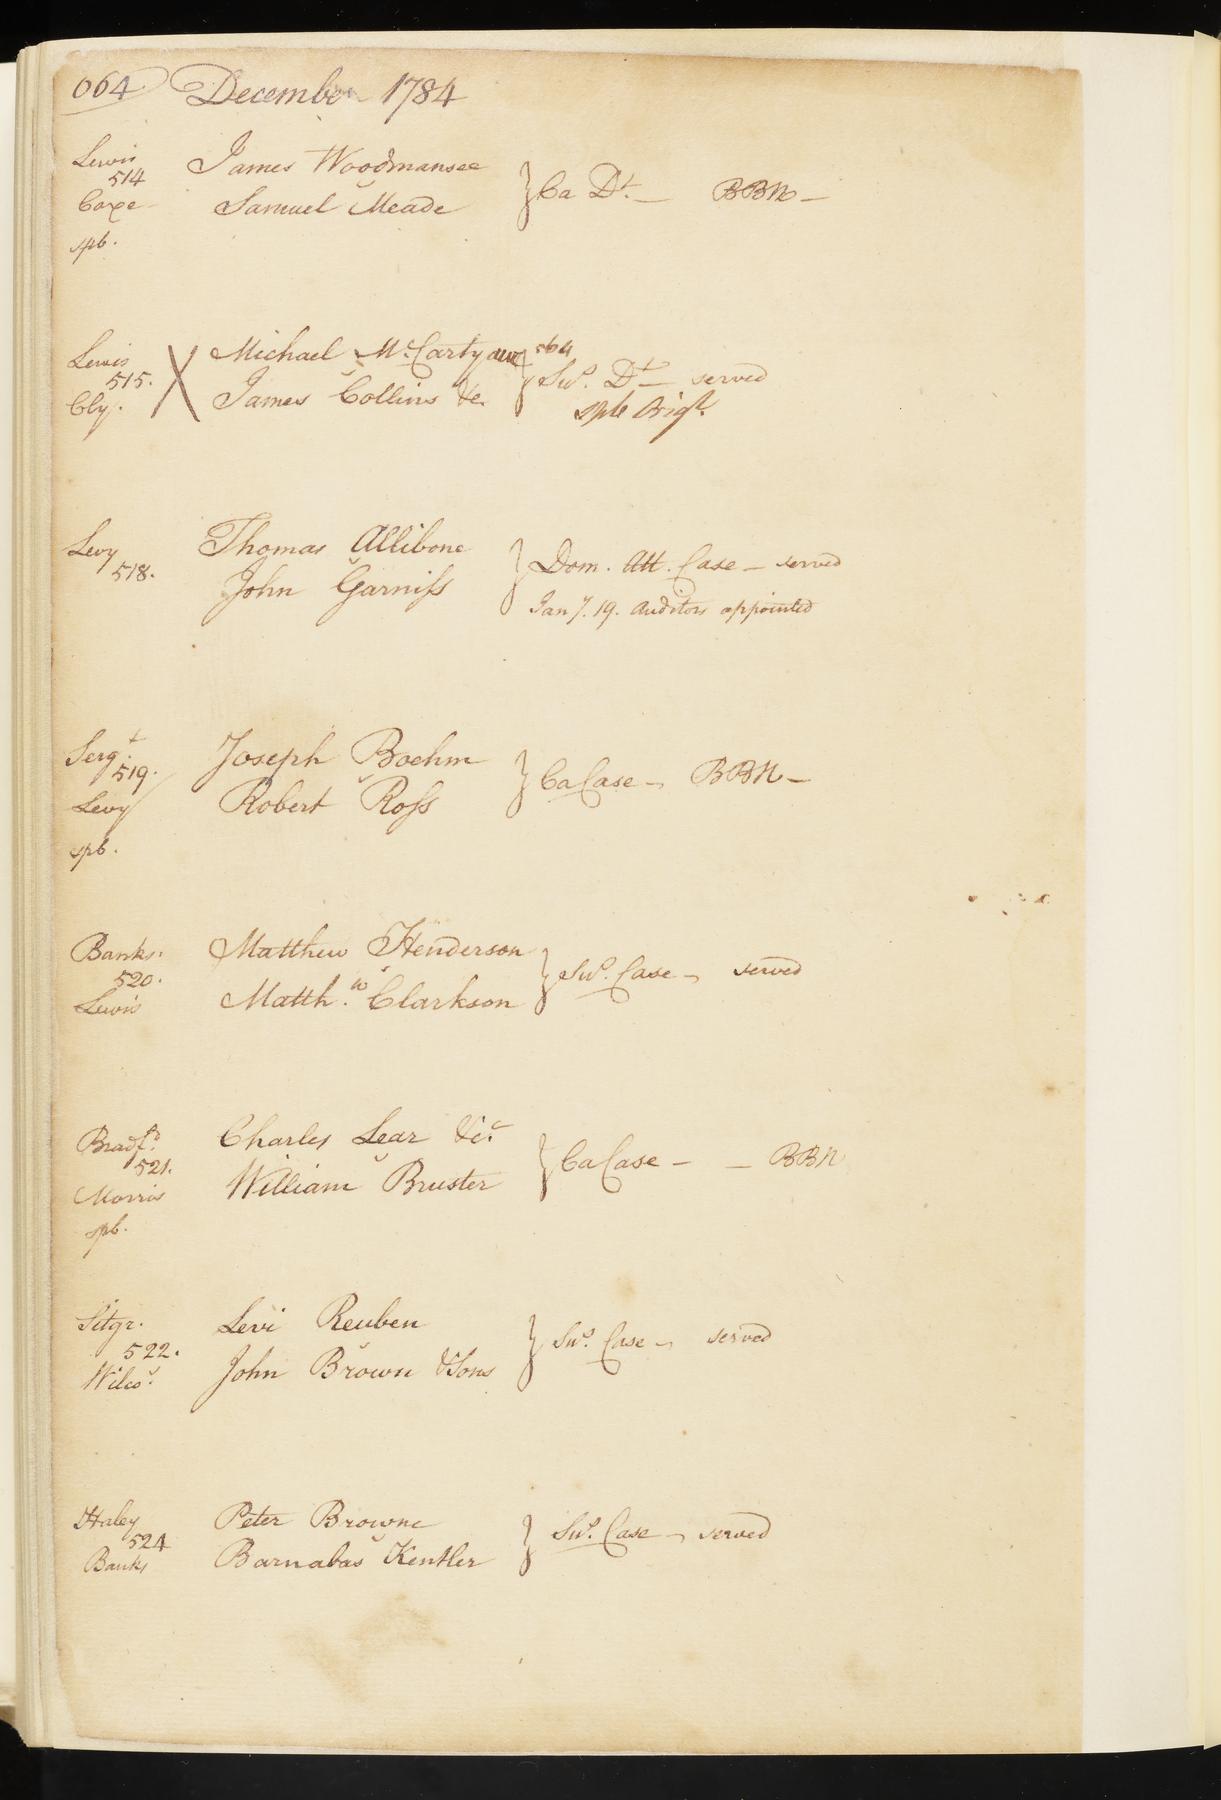 064 December 1784
Lewis 514 Coxe spb.
James Woodmansee
Samuel Meade
} Ca Dt. — BBN —
Lewis 515. Cly. X
Michael McCarty 564
James Collins &c.
} Sus. Dt — served
spb Origl.
Levy 518.
Thomas Allibone
John Garniss
} Dom. Att. Case — served
Jany. 19. Auditors appointed
Sergt. 519. Levy spb.
Joseph Boehm
Robert Ross
} Ca Case — BBN —
Banks. 520. Lewis
Matthew Henderson
Matthw. Clarkson
} Sus. Case — served
Bradfd. 521. Morris spb.
Charles Lear &c.
William Bruster
} Ca Case — — BBN
Sitgr. 522. Wilcos.
Levi Reuben
John Brown & Sons
} Sus. Case — served
Haley 524 Banks
Peter Browne
Barnabas Kentler
} Sus. Case — served